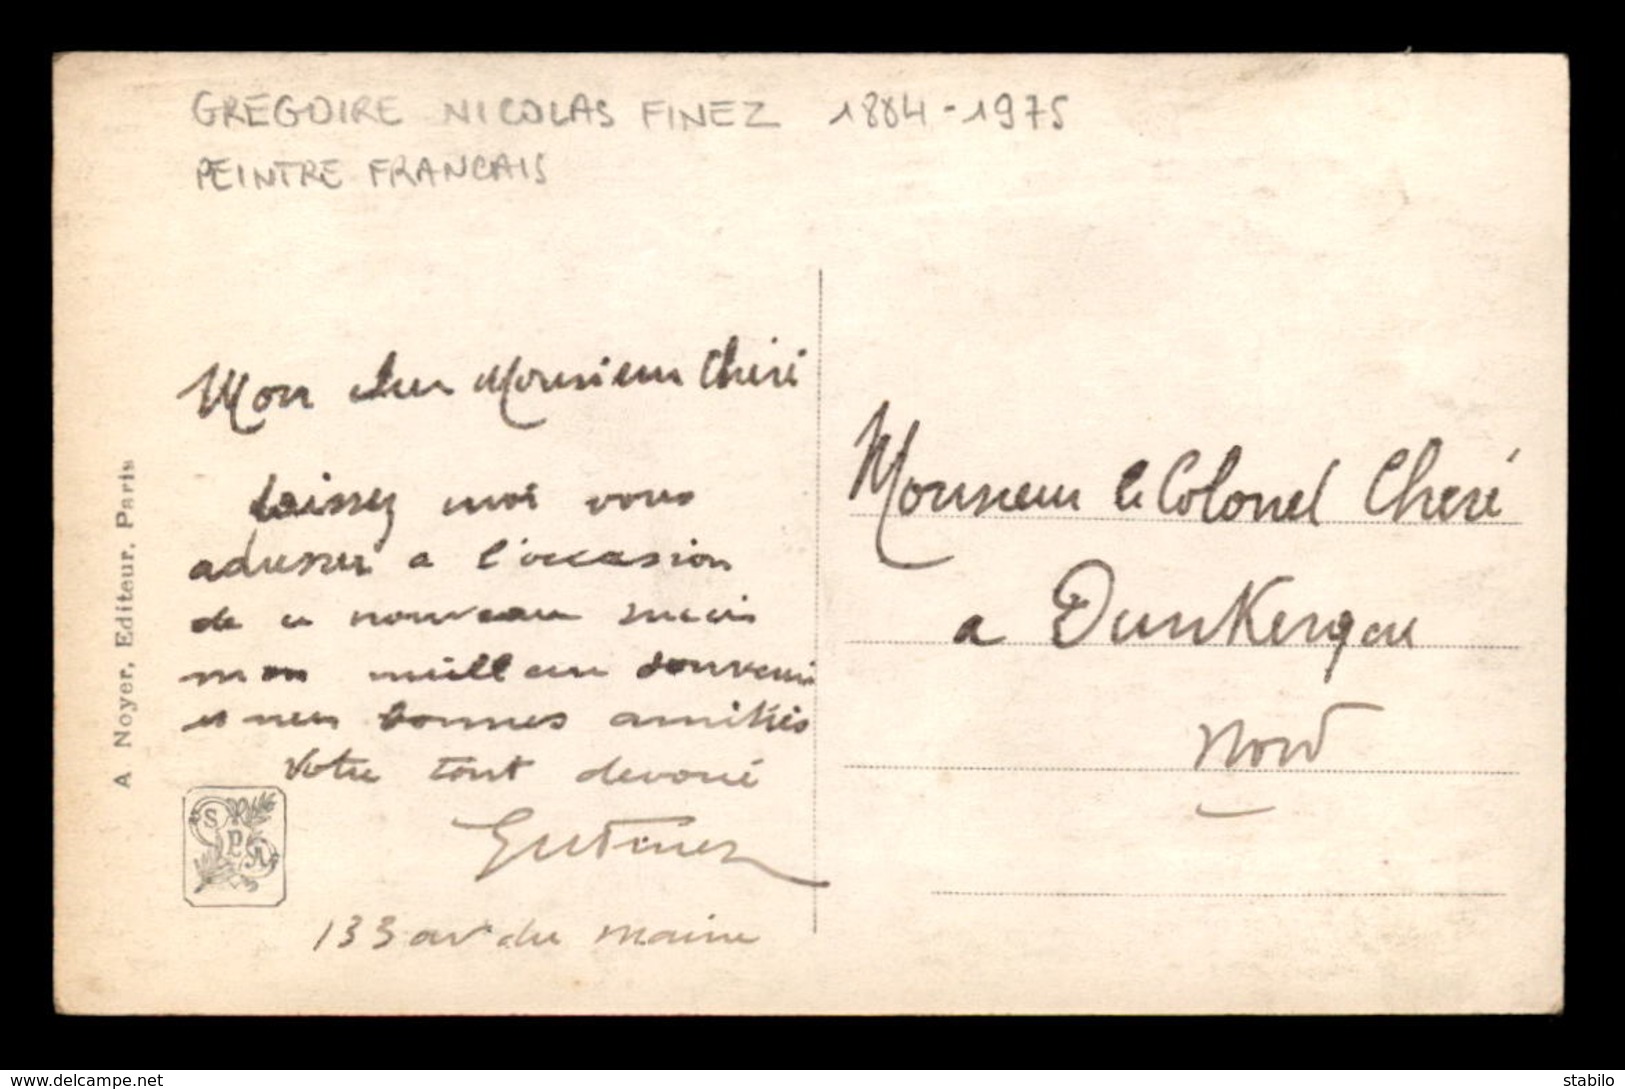 GREGOIRE NICOLAS FINEZ 1884-1975
PEINTRE FRANCAIS
Mon cher Monsieur Cheré
Laissez moi vous
adresser a l'occasion
de ce nouveau succis
mon meilleur souvenir
et mes bonnes amitiés
Votre tout devoué
133 av. du maine
Monsieur le Colonel Cheré
a Dunkerque
Nord
A Noyer, Editeur, Paris
SPA
delcampe.net
stabilo